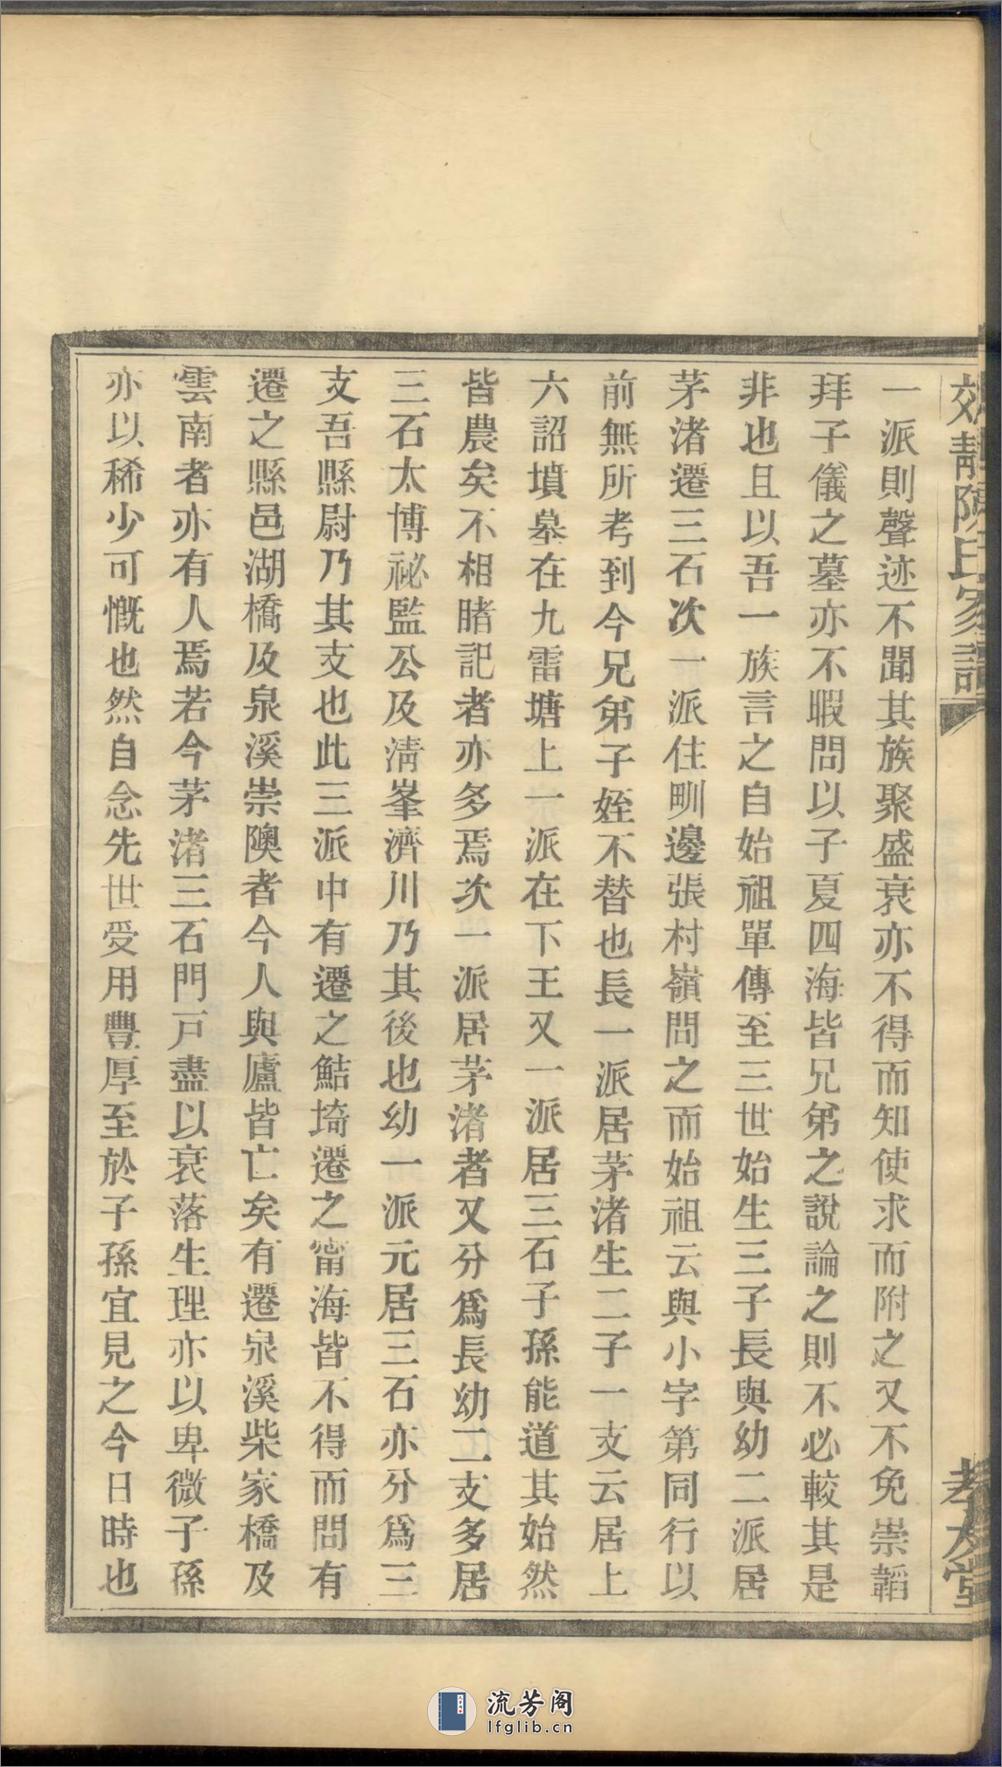 陳氏家譜
一派則聲迹不聞其族聚盛衰亦不得而知使求而附之又不免崇韜
拜子儀之墓亦不暇問以子夏四海皆兄弟之說論之則不必較其是
非也且以吾一族言之自始祖單傳至三世始生三子長與幼二派居
茅渚遷三石次一派住甽邊張村嶺問之而始祖云與小字第同行以
前無所考到今兄弟子姪不替也長一派居茅渚生二子一支云居上
六詔墳墓在九雷塘上一派在下王又一派居三石子孫能道其始然
皆農矣不相睹記者亦多焉次一派居茅渚者又分爲長幼二支多居
三石太博祕監公及淸峯濟川乃其後也幼一派元居三石亦分爲三
支吾縣尉乃其支也此三派中有遷之鮚埼遷之甯海皆不得而問有
遷之縣邑湖橋及泉溪崇隩者今人與廬皆亡矣有遷泉溪柴家橋及
雲南者亦有人焉若今茅渚三石門戸盡以衰落生理亦以卑微子孫
亦以稀少可慨也然自念先世受用豐厚至於子孫宜見之今日時也
流芳阁
lfglib.cn